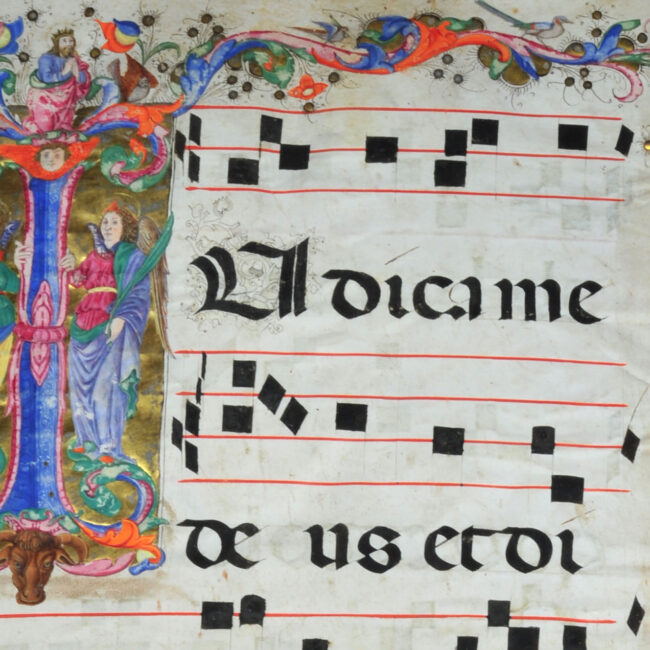 IU dica me
de us et di